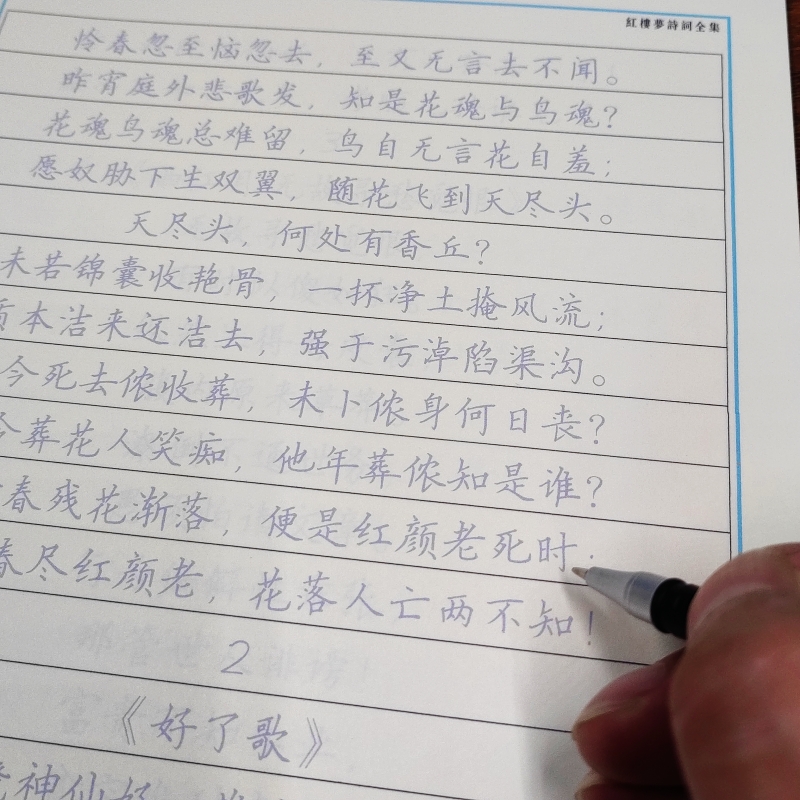 紅樓夢詩詞全集
怜春忽至恼忽去，至又无言去不闻。
昨宵庭外悲歌发，知是花魂与鸟魂？
花魂鸟魂总难留，鸟自无言花自羞；
愿奴胁下生双翼，随花飞到天尽头。
天尽头，何处有香丘？
未若锦囊收艳骨，一抔净土掩风流；
质本洁来还洁去，强于污淖陷渠沟。
今死去侬收葬，未卜侬身何日丧？
今葬花人笑痴，他年葬侬知是谁？
春残花渐落，便是红颜老死时；
春尽红颜老，花落人亡两不知！
2
《好了歌》
神仙好